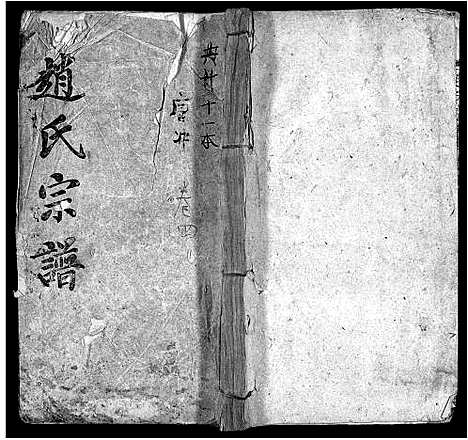 趙氏宗譜
共廿十一本
卷四